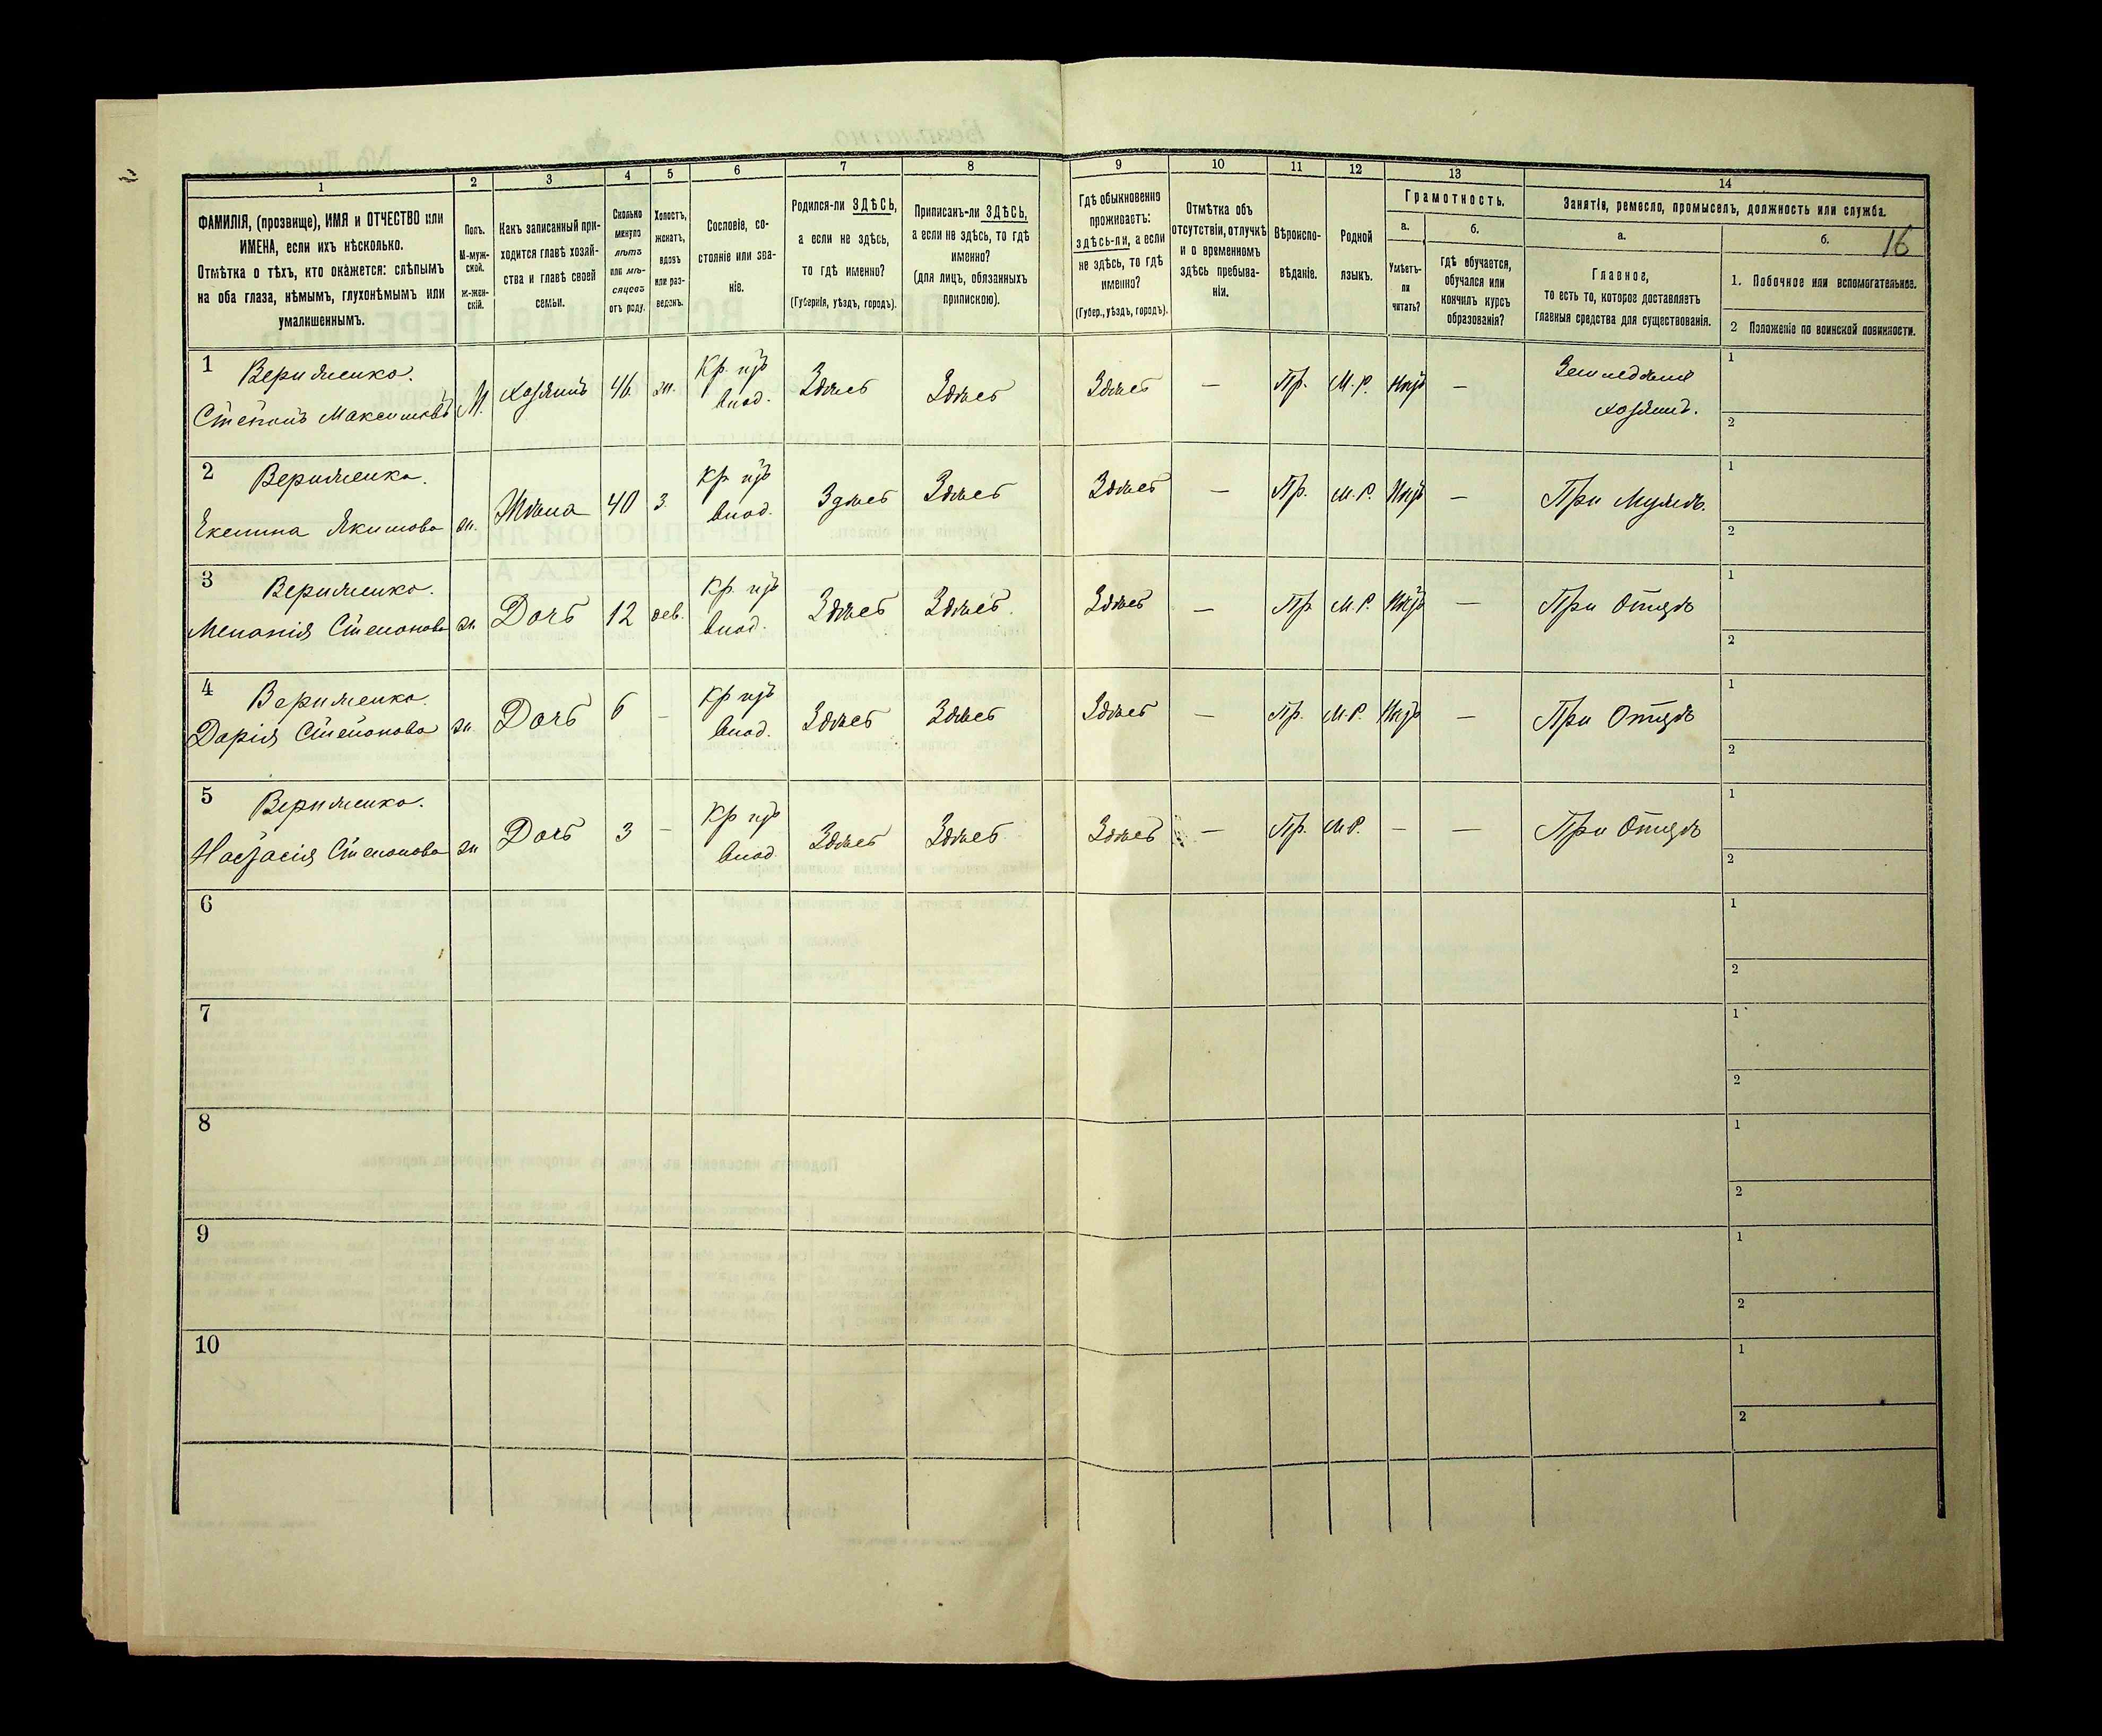 1
2
3
4
5
6
7
8
9
10
11
12
13
14
ФАМИЛІЯ, (прозвище), ИМЯ и ОТЧЕСТВО или
ИМЕНА, если ихъ нѣсколько.
Отмѣтка о тѣхъ, кто окажется: слѣпымъ
на оба глаза, нѣмымъ, глухонѣмымъ или
умалишеннымъ.
Полъ.
М-муж-
ской.
Ж-жен-
скій.
Какъ записанный при-
ходится главѣ хозяй-
ства и главѣ своей
семьи.
Сколько
минуло
лѣтъ
или мѣ-
сяцевъ
отъ роду.
Холостъ,
женатъ,
вдовъ
или раз-
веденъ.
Сословіе, со-
стояніе или зва-
ніе.
Родился-ли ЗДѢСЬ,
а если не здѣсь,
то гдѣ именно?
(Губернія, уѣздъ, городъ).
Приписанъ-ли ЗДѢСЬ,
а если не здѣсь, то гдѣ
именно?
(для лицъ, обязанныхъ
припискою).
Гдѣ обыкновенно
проживаетъ:
здѣсь-ли, а если
не здѣсь, то гдѣ
именно?
(Губер., уѣздъ, городъ).
Отмѣтка объ
отсутствіи, отлучкѣ
и о временномъ
здѣсь пребыва-
ніи.
Вѣроиспо-
вѣданіе.
Родной
языкъ.
Грамотность.
а.
Умѣетъ-
ли
читать?
б.
Гдѣ обучается,
обучался или
кончилъ курсъ
образованія?
Занятіе, ремесло, промыселъ, должность или служба.
а.
Главное,
то есть то, которое доставляетъ
главныя средства для существованія.
б.
16
1. Побочное или вспомогательное.
2 Положеніе по воинской повинности.
1 Веримѣенко.
Степанъ Максимовъ М. Хозяинъ 46 ж. Кр. изъ Здѣсь Здѣсь Здѣсь — Пр. М.Р. Нѣтъ — Земледѣлие
влад. хозяинъ.
1
2
2 Веримѣенко.
Якимова ж. Жѣна 40 з. Кр изъ Здѣсь Здѣсь Здѣсь — Пр. М.Р. Нѣтъ — При Мужѣ.
влад.
1
2
3 Веримѣенко.
Меланія Степанова ж. Дочь 12 дев. Кр. изъ Здѣсь Здѣсь. Здѣсь — Пр. М.Р. Нѣтъ — При Отцѣ
влад.
1
2
4 Веримѣенко.
Дарія Степанова ж. Дочь 6 — Кр изъ Здѣсь Здѣсь Здѣсь — Пр. М.Р. Нѣтъ — При Отцѣ
влад.
1
2
5 Веримѣенко.
Настасія Степанова ж Дочь 3 — Кр изъ Здѣсь Здѣсь Здѣсь — Пр. М.Р. — — При Отцѣ
влад
1
2
6
1
2
7
1
2
8
1
2
9
1
2
10
1
2